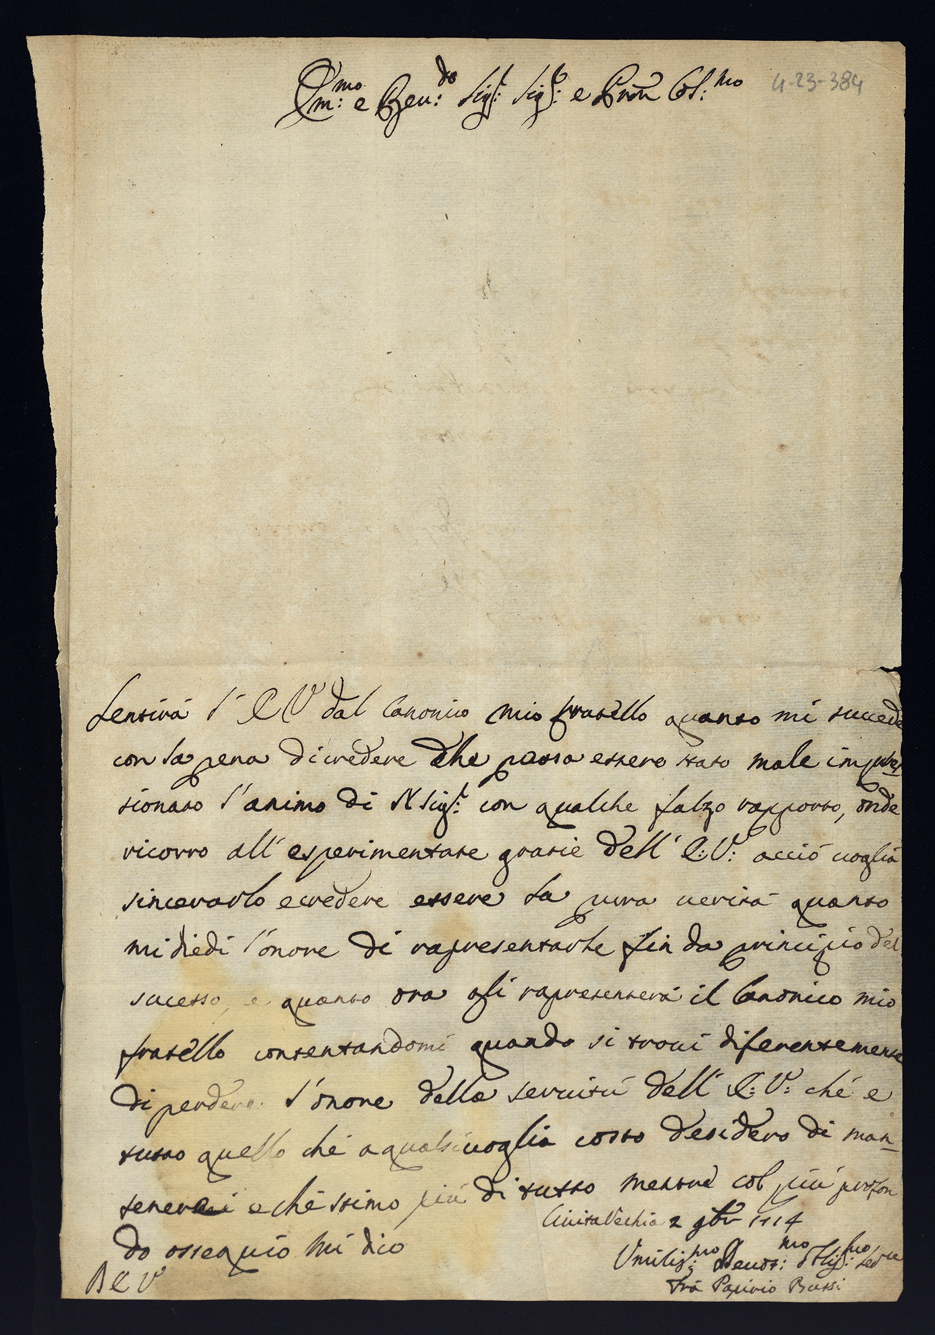 Em:mo e Reu:do Sig:r Sig:r e Pron Col:mo
4-23-384
Sentirà l' E V dal Canonico mio fratello quanto mi succede
con la pena di credere che possa essere stato male impres-
sionato l'animo di N Sig:r con qualche falzo rapporto, onde
ricorro all' esperimentate grazie dell' E:V: acciò voglia
sincerarlo e credere essere la pura verità quanto
mi diedi l'onore di rapresentarle fin da principio del
sucesso, e quanto ora gli rapresenterà il Canonico mio
fratello contentandomi quando si trovi diferentemente
di perdere l'onore della servitù dell' E:V: che e
tutto quello che a qualsivoglia costo desidero di man-
tenermi e che stimo più di tutto mentre col più profon
do ossequio mi dico
B E V
Civita Vechia 2 gbr 1714
Umilis:mo Deuot:mo Oblig:mo Ser:re
Frà Papirio Bussi